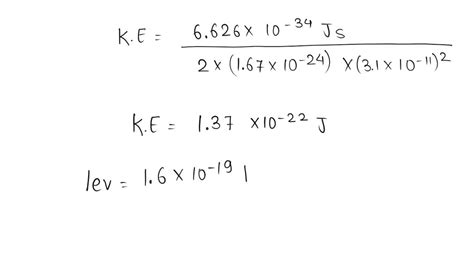 K.E = 6.626 × 10⁻³⁴ Js
2 × (1.67 × 10⁻²⁴) × (3.1 × 10⁻¹¹)²
K.E = 1.37 × 10⁻²² J
1ev = 1.6 × 10⁻¹⁹ |